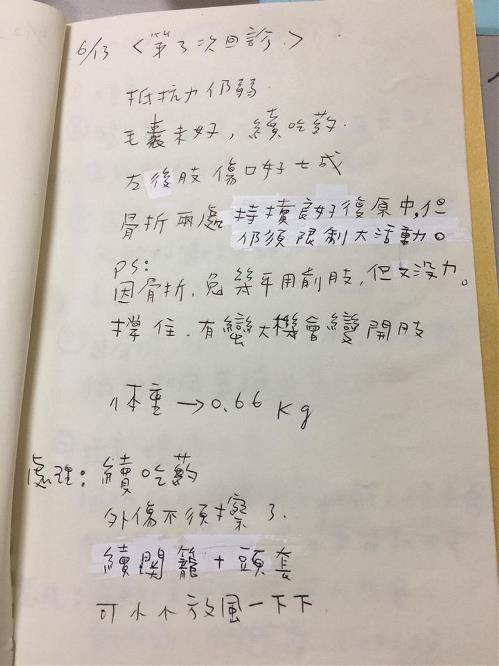 6/13 <第3次回診.>
抵抗力仍弱.
毛囊未好, 續吃葯.
左後肢傷口好七成
骨折兩處持續良好復原中,但
仍須限制大活動。
PS:
因骨折,兔幾乎用前肢,但又沒力。
撐住.有蠻大機會變開肢
体重→0.66 Kg
處理: 續吃葯
外傷不須擦了.
續関籠+頭套
可小小放風一下下.